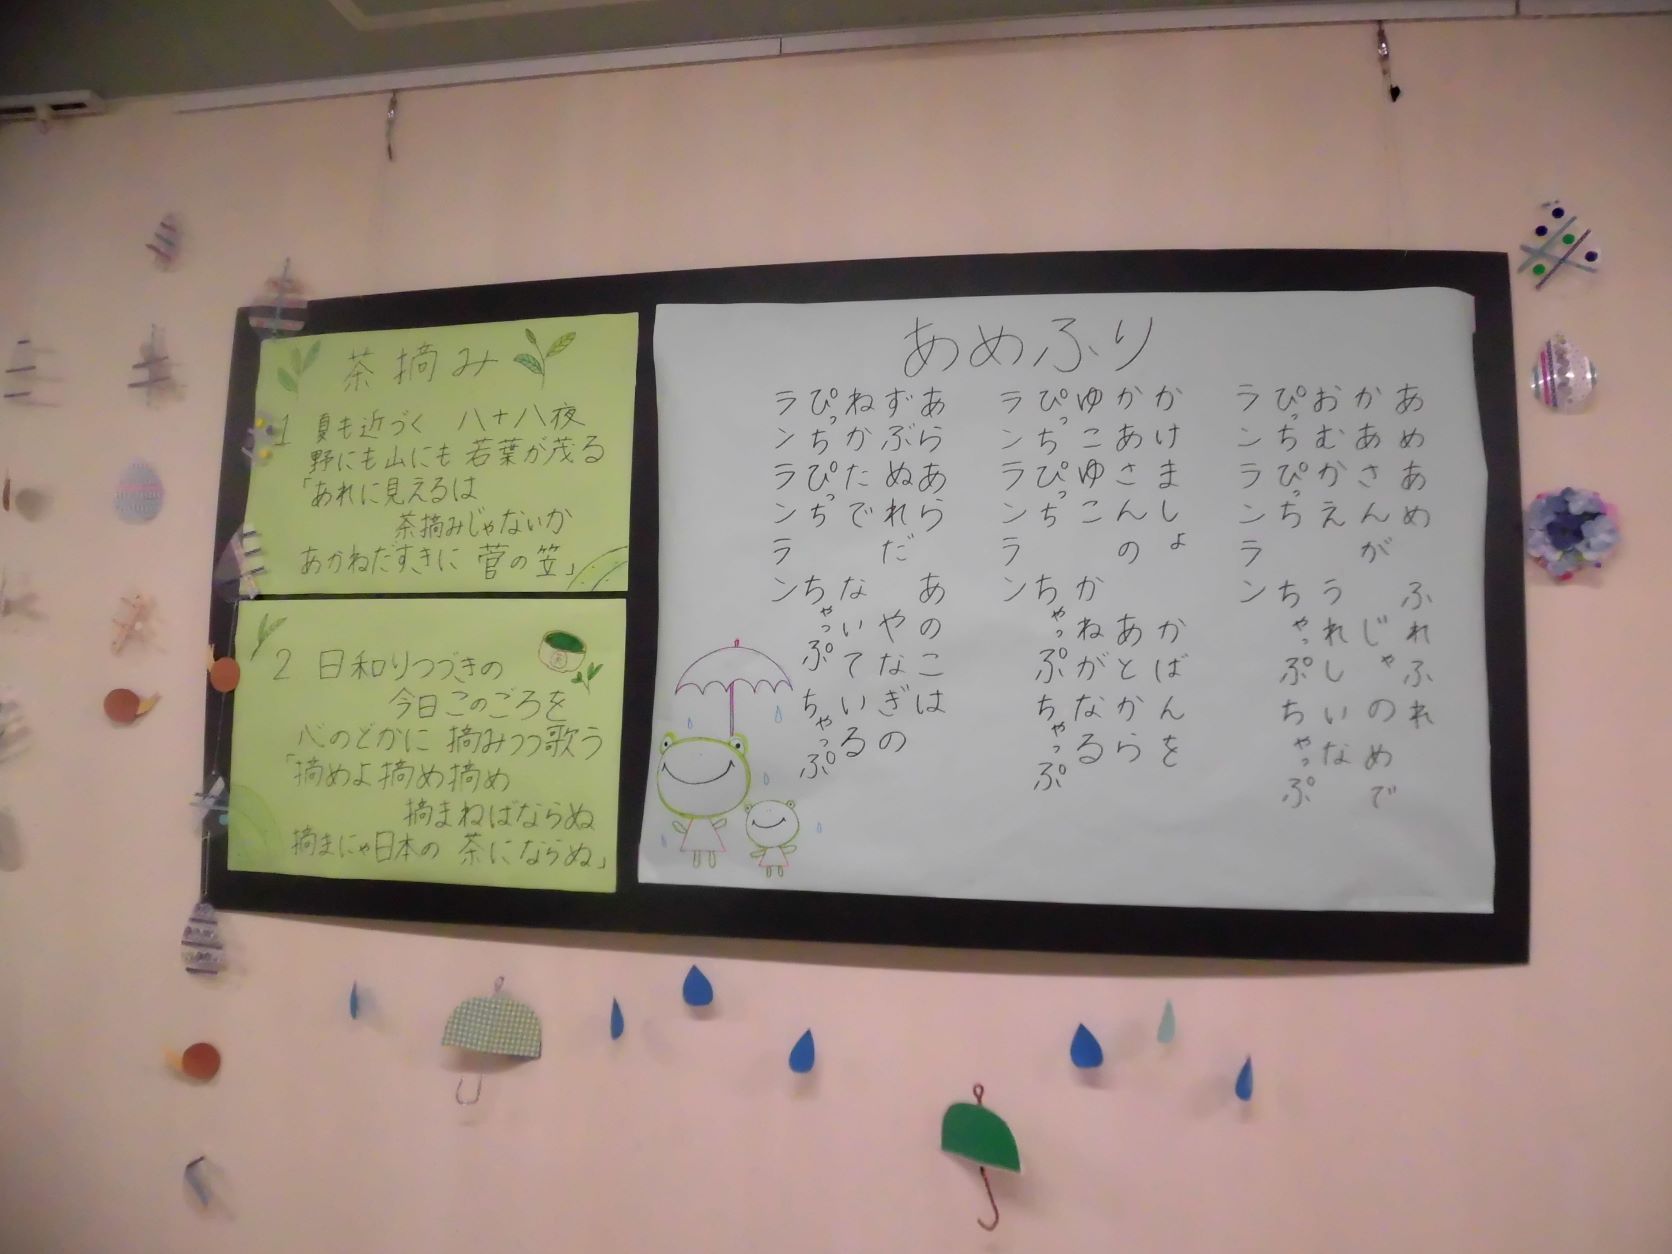 茶摘み
1 夏も近づく 八十八夜
野にも山にも 若葉が茂る
「あれに見えるは
茶摘みじゃないか
あかねだすきに 菅の笠」
2 日和りつづきの
今日このごろを
心のどかに 摘みつつ歌う
「摘めよ摘め摘め
摘まねばならぬ
摘まにゃ日本の 茶にならぬ」
あめふり
あめあめ ふれふれ
かあさんが じゃのめで
おむかえ うれしいな
ぴっちぴっち ちゃっぷちゃっぷ
ランランラン
かけましょ かばんを
かあさんの あとから
ゆこゆこ かねがなる
ぴっちぴっち ちゃっぷちゃっぷ
ランランラン
あらあら あのこは
ずぶぬれだ やなぎの
ねかたで ないている
ぴっちぴっち ちゃっぷちゃっぷ
ランランラン